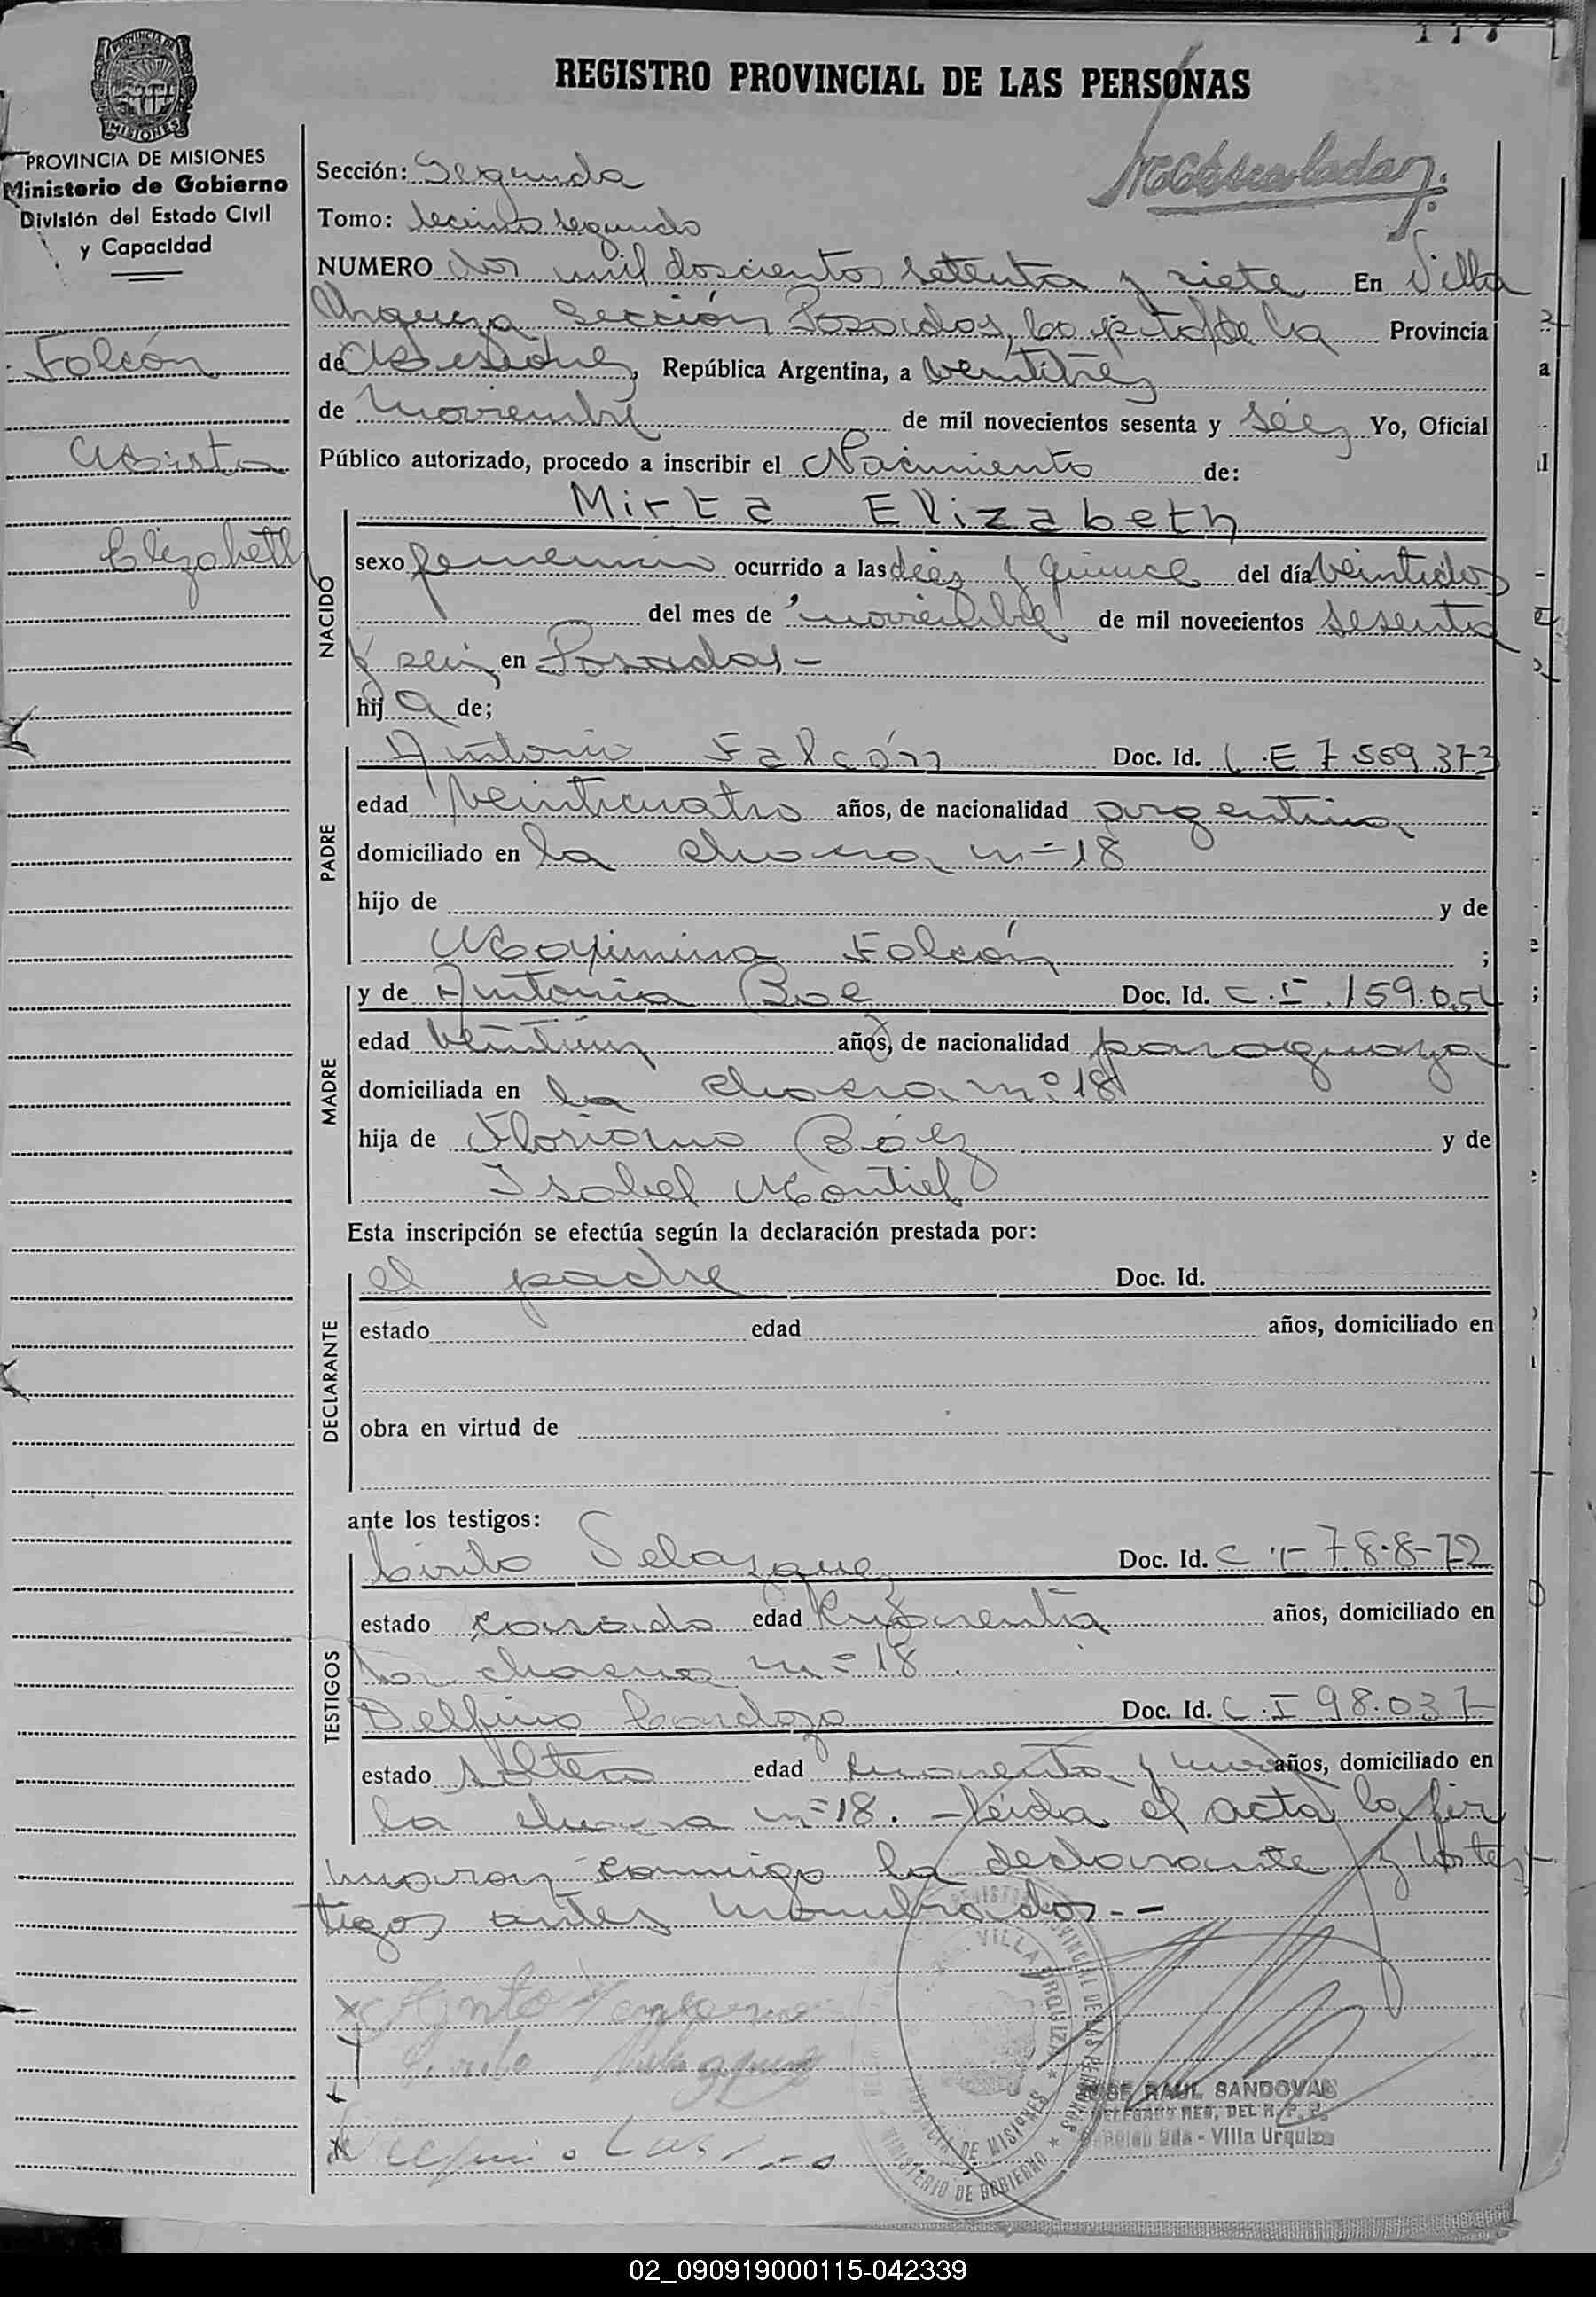 REGISTRO PROVINCIAL DE LAS PERSONAS
PROVINCIA DE MISIONES
Ministerio de Gobierno
División del Estado Civil
y Capacidad
Falcón
Mirta
Elizabeth
Sección: Segunda
Tomo: segundo
NUMERO dos mil doscientos setenta y siete En Villa
Urquiza Sección Posadas, Capital de la Provincia
de Misiones, República Argentina, a veintitrés
de Noviembre de mil novecientos sesenta y séis Yo, Oficial
Público autorizado, procedo a inscribir el Nacimiento de:
Mirta Elizabeth
NACIDO
sexo femenino ocurrido a las diéz y quince del día veintidos
del mes de noviembre de mil novecientos sesenta
y seis en Posadas -
hija de;
PADRE
Antonio Falcón Doc. Id. L.E 7.559.373
edad veinticuatro años, de nacionalidad argentino
domiciliado en la chacra nº 18
hijo de y de
Maximina Falcón ;
MADRE
y de Antonia Doc. Id. C.I. 159.054
edad años, de nacionalidad paraguaya
domiciliada en la chacra nº 18
hija de Floriano Báez y de
Isabel Montiel
Esta inscripción se efectúa según la declaración prestada por:
DECLARANTE
el padre Doc. Id.
estado edad años, domiciliado en
obra en virtud de
ante los testigos:
TESTIGOS
Cirilo Velasque Doc. Id. C.I 78.8-72
estado casado edad años, domiciliado en
la chacra nº 18.
Delfino Cardozo Doc. Id. C.I 98.037
estado soltero edad cuarenta y años, domiciliado en
la chacra nº 18. - leida el acta la fir
maron conmigo la declarante y los tes-
tigos antes nombrados.-
VILLA URQUIZA
PROVINCIA DE MISIONES
MINISTERIO DE GOBIERNO
JOSE RAUL SANDOVAL
DELEGADO REG. DEL R. P. P.
Sección 2da - Villa Urquiza
02_090919000115-042339